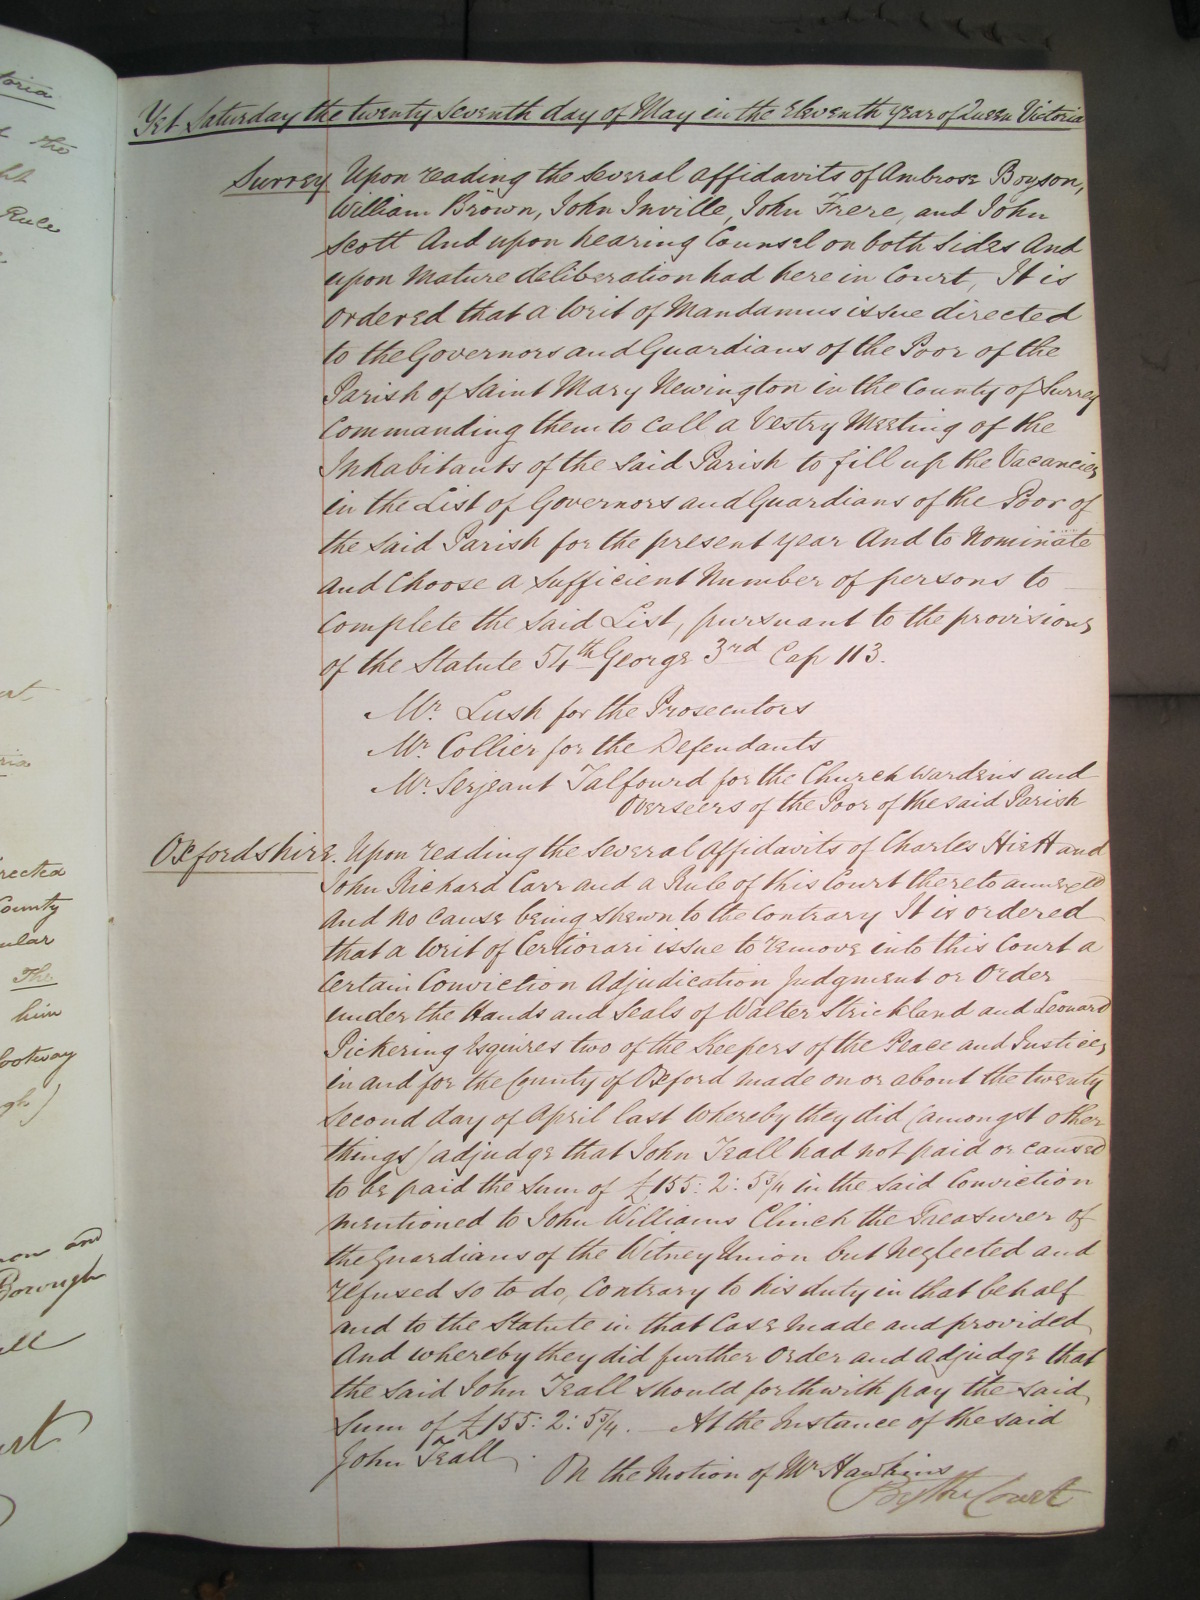 Yet Saturday the twenty seventh day of May in the Eleventh year of Queen Victoria
Surrey Upon reading the several affidavits of Ambrose Boyson,
William Brown, John Inville, John Frere, and John
Scott And upon hearing Counsel on both sides And
upon Mature deliberation had here in Court, It is
ordered that a Writ of Mandamus issue directed
to the Governors and Guardians of the Poor of the
Parish of Saint Mary Newington in the County of Surrey
Commanding them to Call a Vestry Meeting of the
Inhabitants of the said Parish to fill up the Vacancies
in the List of Governors and Guardians of the Poor of
the said Parish for the present year And to Nominate
and Choose a sufficient Number of persons to
Complete the said List, pursuant to the provisions
of the Statute 54th George 3rd Cap 113.
Mr. Lush for the Prosecutors
Mr. Collier for the Defendants
Mr. Serjeant Talfourd for the Church wardens and
Overseers of the Poor of the said Parish
Oxfordshire. Upon reading the several Affidavits of Charles Hiett and
John Richard Carr and a Rule of this Court thereto annexed
and no cause being shewn to the Contrary It is ordered
that a Writ of Certiorari issue to remove into this Court a
Certain Conviction Adjudication Judgment or Order
under the Hands and Seals of Walter Strickland and Leonard
Pickering Esquires two of the Keepers of the Peace and Justices
in and for the County of Oxford made on or about the twenty
second day of April last whereby they did (amongst other
things) adjudge that John Teall had not paid or caused
to be paid the Sum of £155: 2: 5¾ in the said Conviction
mentioned to John Williams Clinch the Treasurer of
the Guardians of the Witney Union but Neglected and
refused so to do, Contrary to his duty in that behalf
and to the Statute in that Case Made and provided,
And whereby they did further Order and Adjudge that
the said John Teall should forthwith pay the said
Sum of £155: 2: 5¾. — At the Instance of the said
John Teall.
On the Motion of Mr Hawkins
By the Court